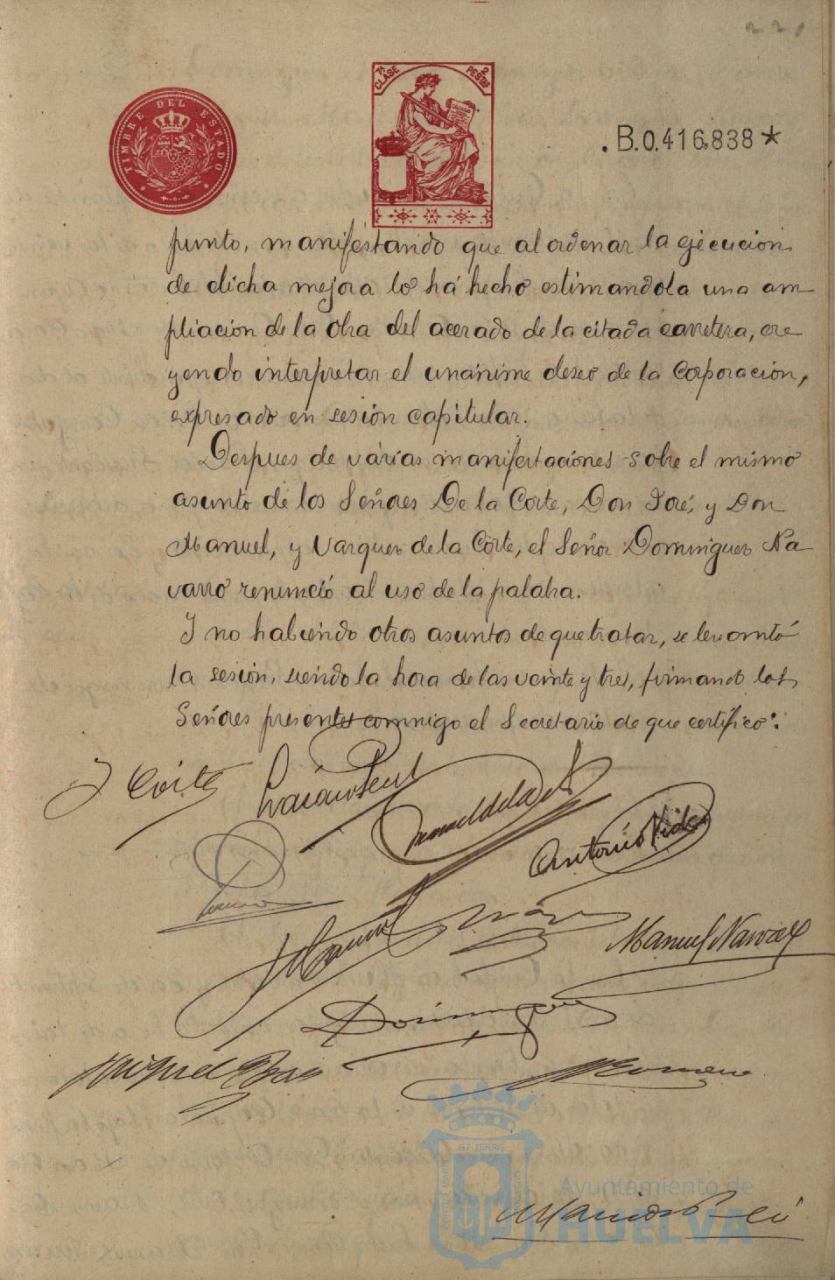 221
TIMBRE DEL ESTADO
7ª CLASE 2 PESETAS
.B.0.416,838*
punto, manifestando que al ordenar la ejecucion
de dicha mejora lo há hecho estimandola una am
pliacion de la obra del acerado de la citada carretera, cre
yendo interpretar el unánime deseo de la Corporación,
expresado en sesión capitular.
Despues de várias manifestaciones sobre el mismo
asunto de los Señores De la Corte, Don José, y Don
Manuel, y Vazquez de la Corte, el Señor Dominguez Na
varro renunció al uso de la palaba.
Y no habiendo otros asuntos de que tratar, se levantó
la sesión, siendo la hora de las veinte y tres, firmando los
Señores presentes conmigo el Secretario de que certifico.
J Corte
Manuel de la Corte
Antonio Vides
Manuel Narváez
Dominguez
Miguel
Romero
Ayuntamiento de
HUELVA